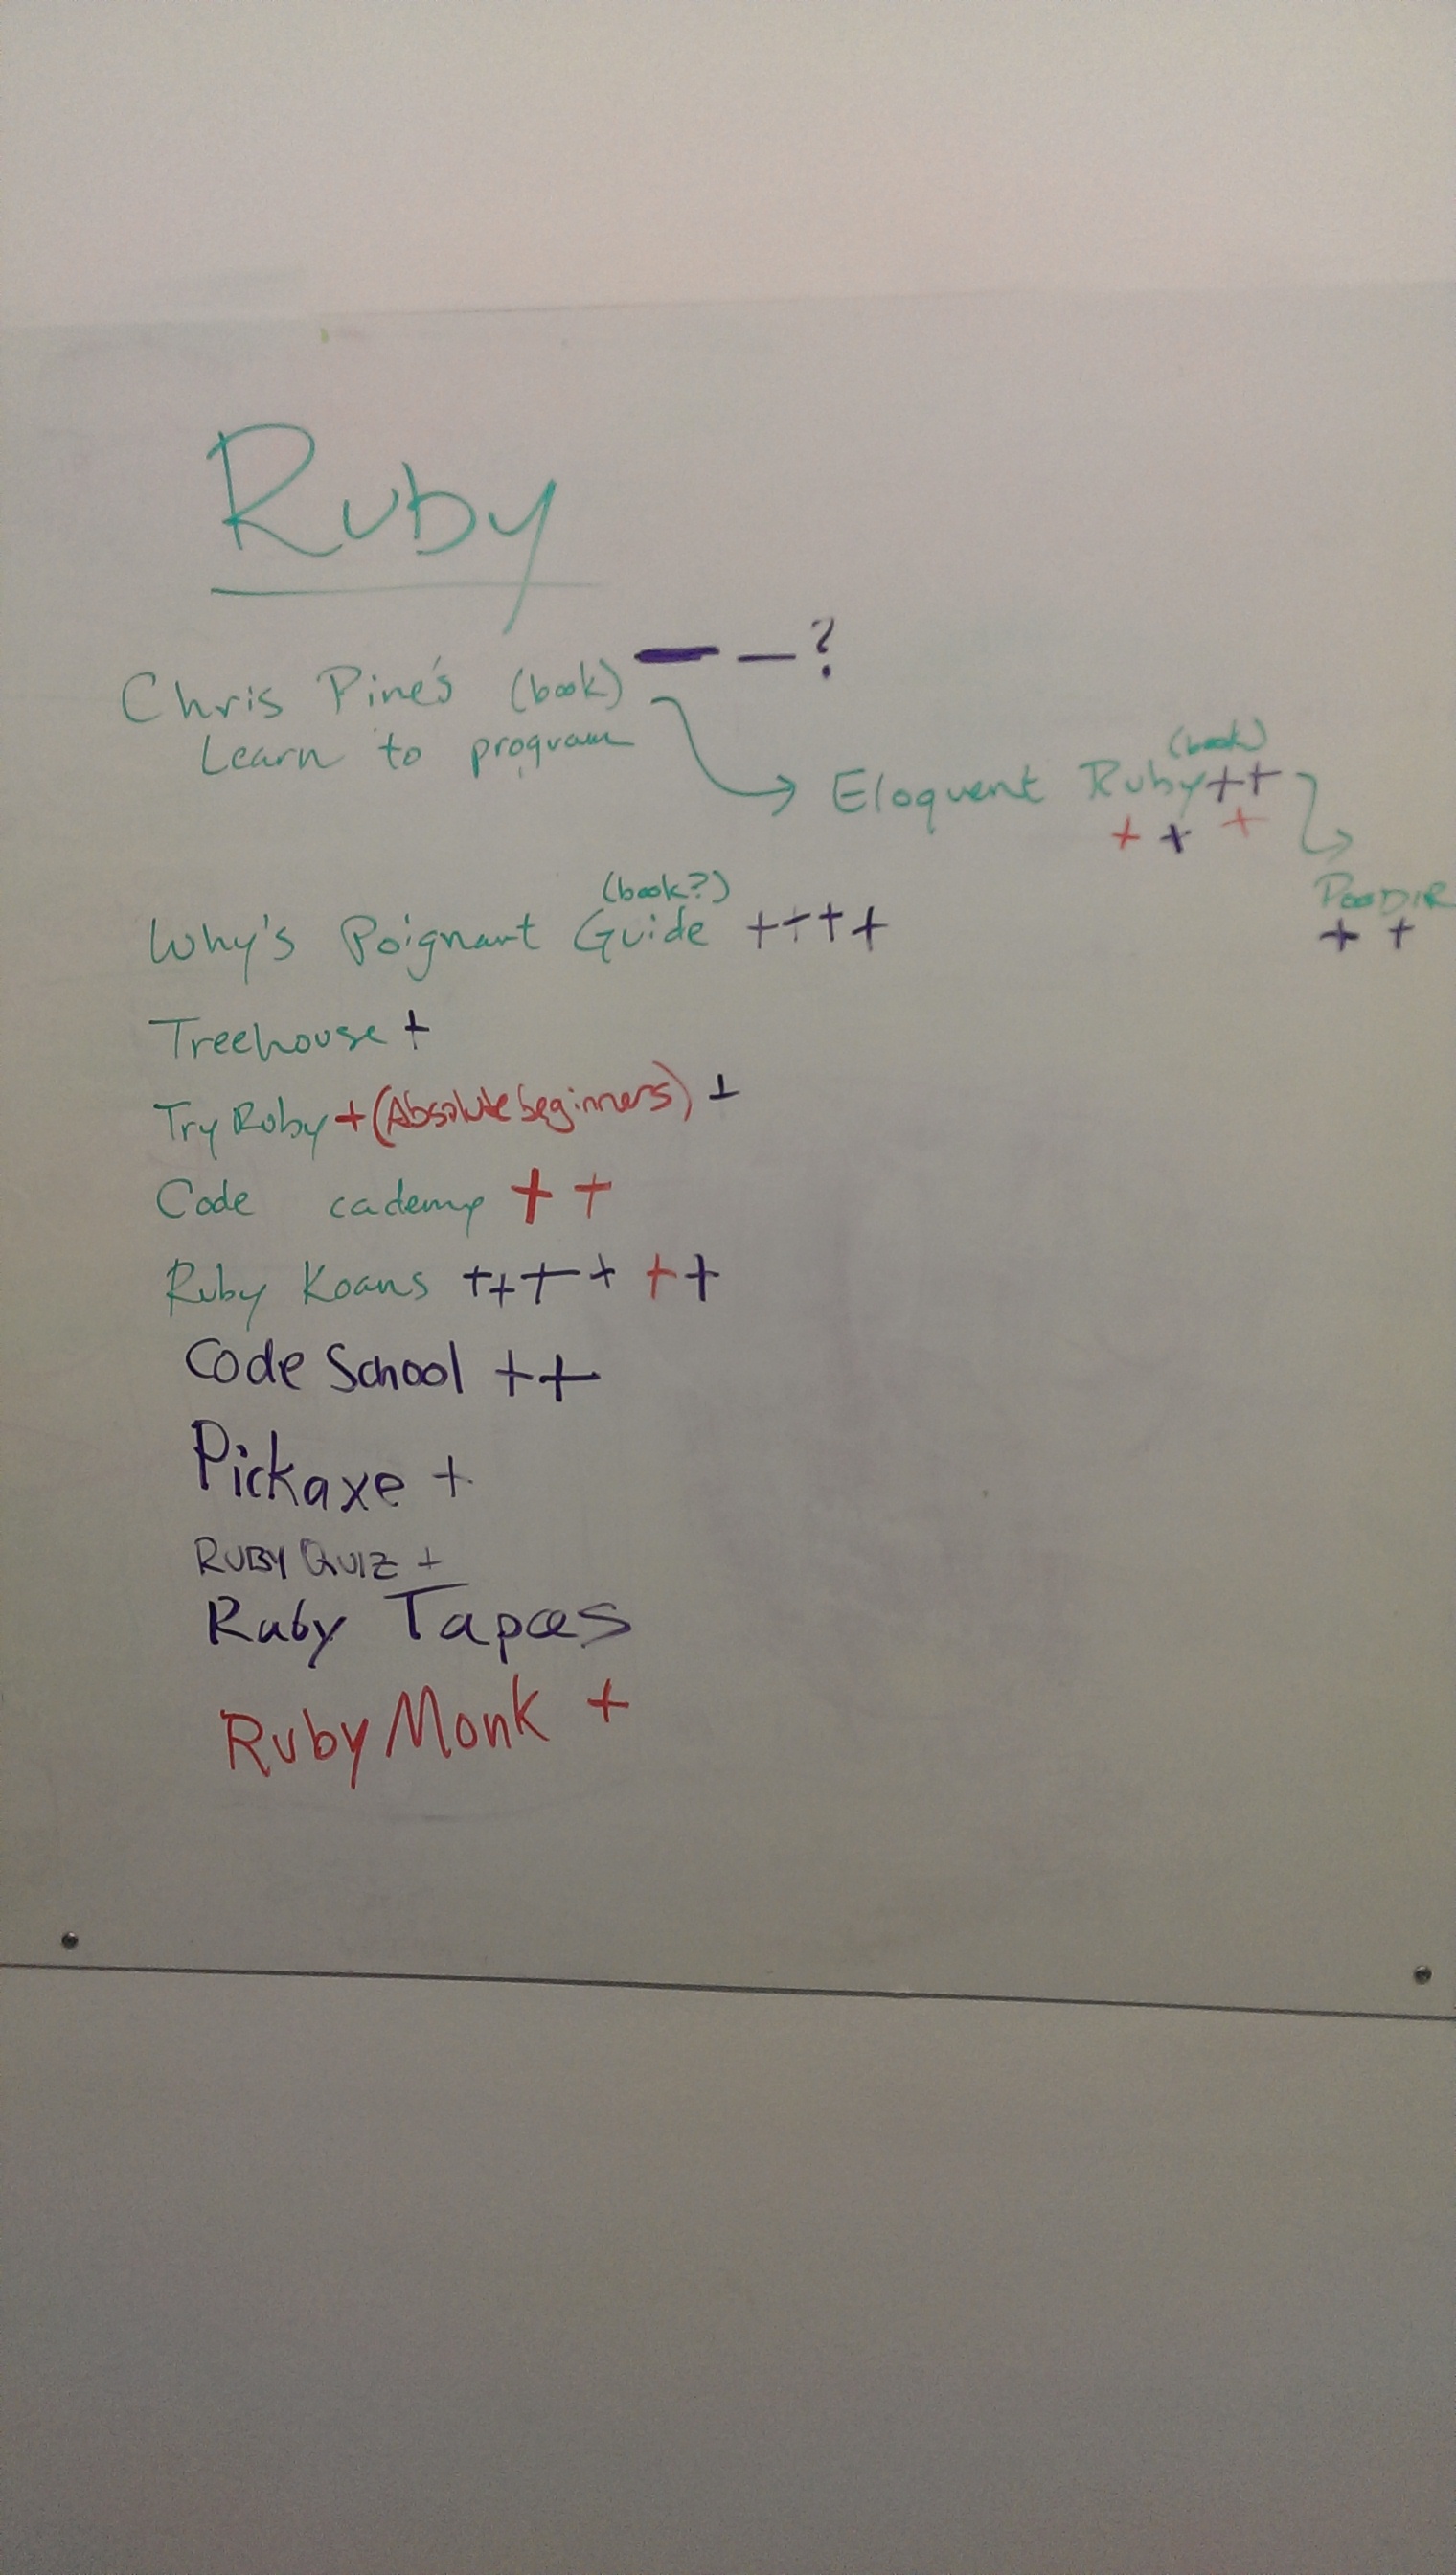 Ruby
Chris Pine's (book) — — ?
Learn to program
(book)
Eloquent Ruby ++
+ + +
POODIR
+ +
(book?)
Why's Poignant Guide ++++
Treehouse +
Try Ruby + (Absolute beginners) +
Code cademy + +
Ruby Koans ++++ ++
Code School ++
Pickaxe +
RUBY QUIZ +
Ruby Tapas
Ruby Monk +